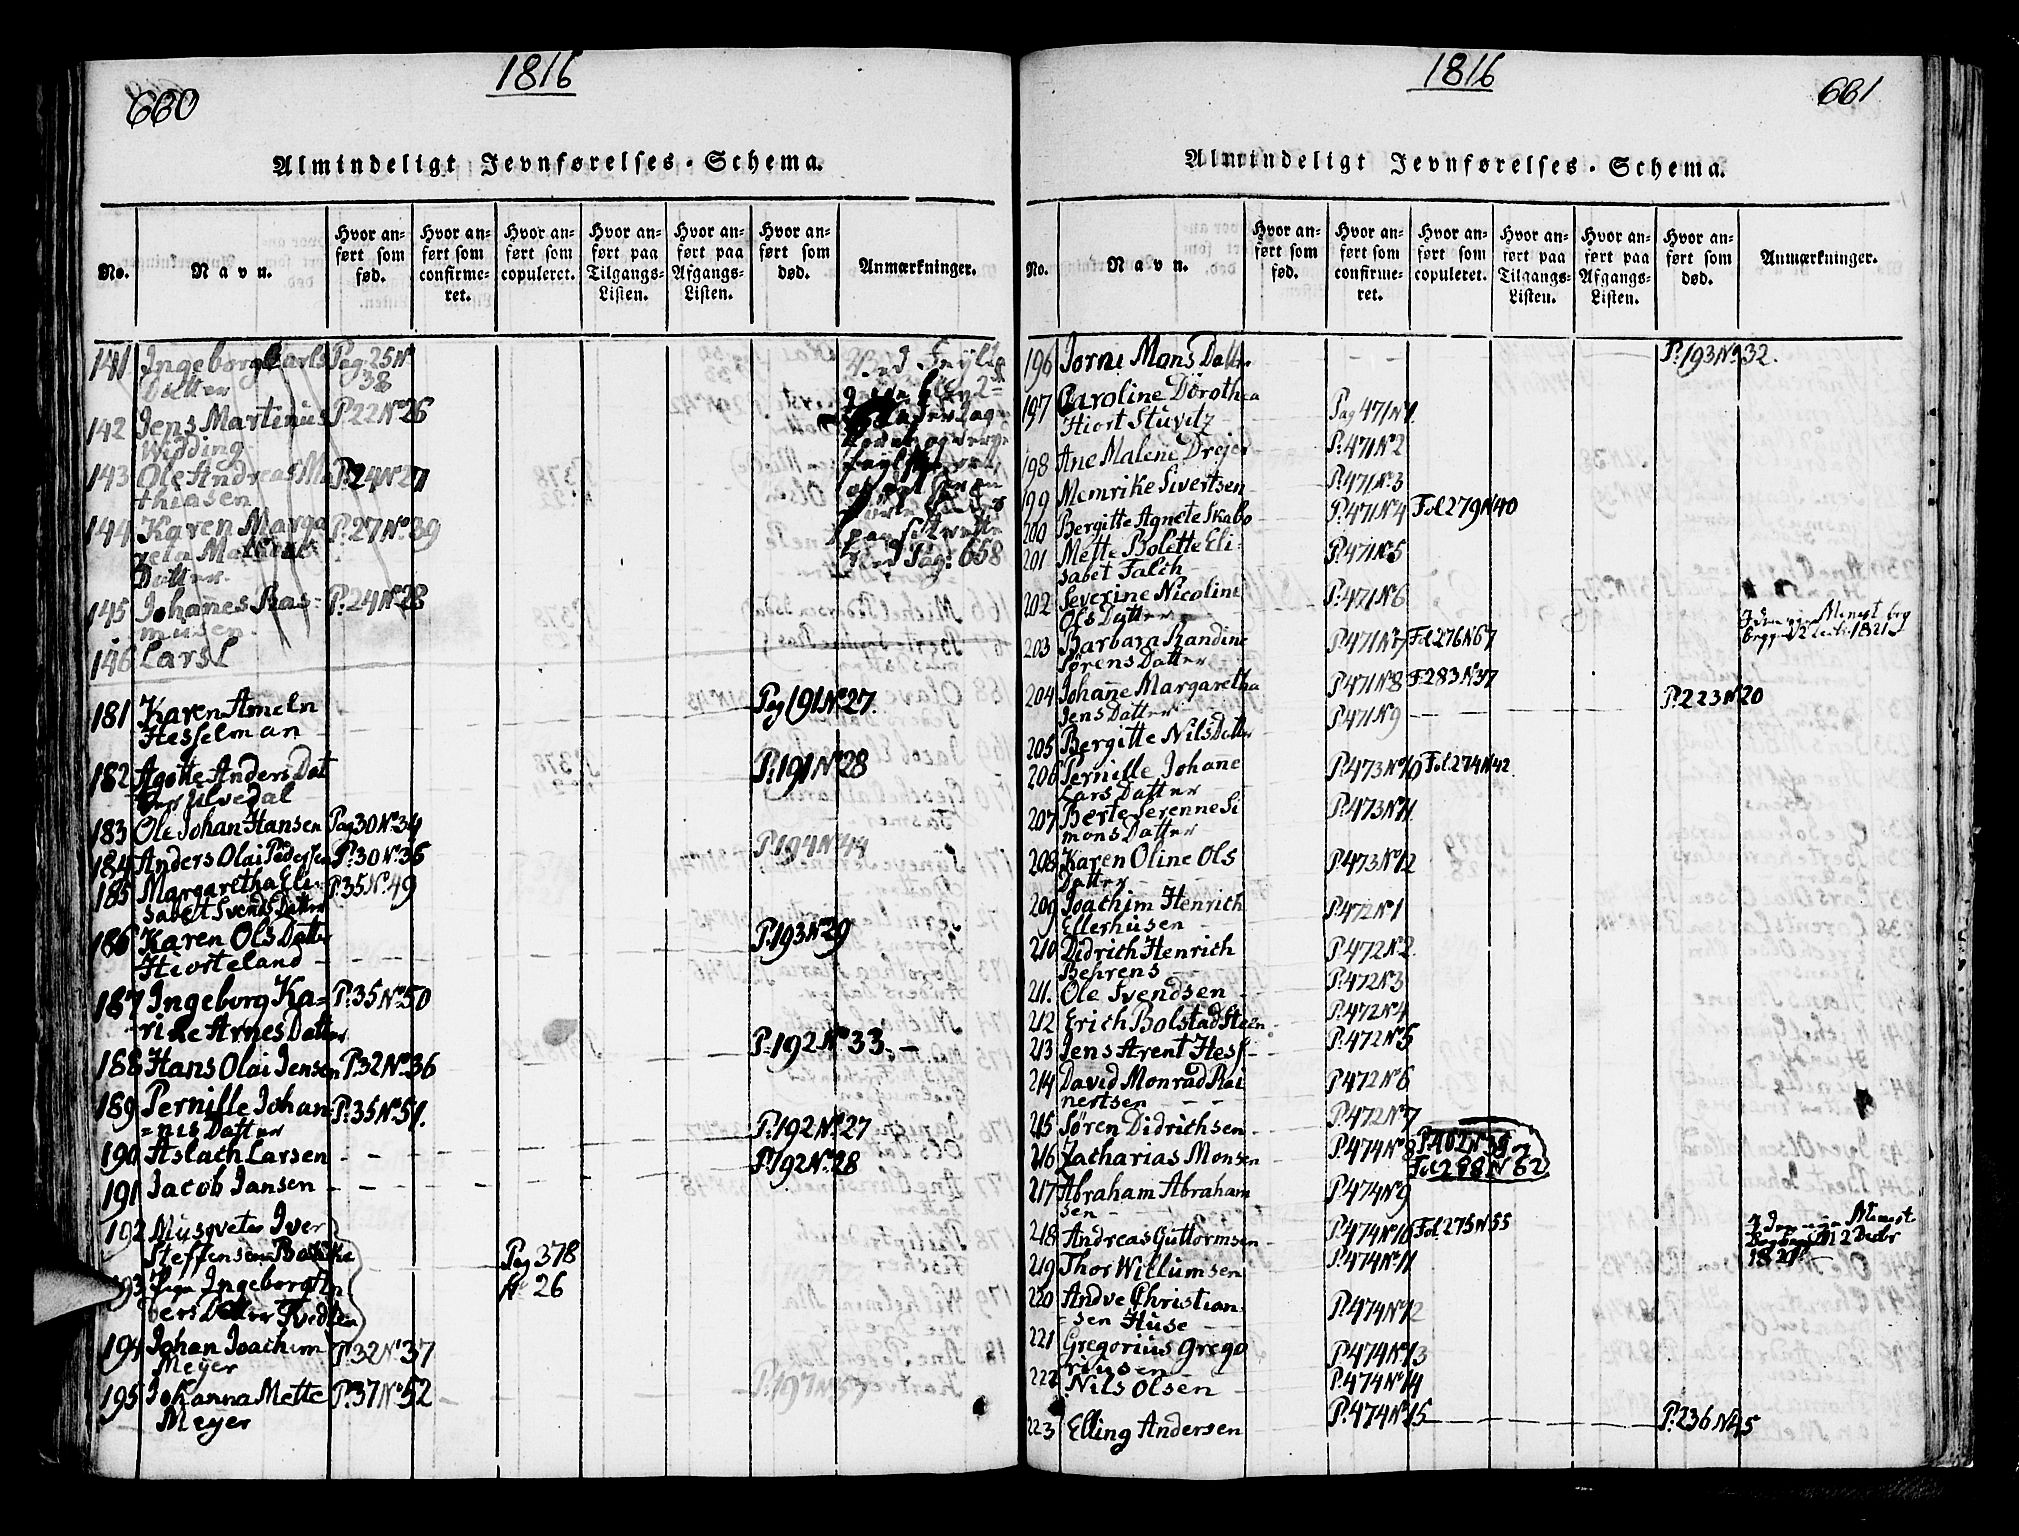 1816
660
Almindeligt Jevnførelses-Schema.
No.
Navn.
Hvor anført som fød.
Hvor anført som confirmeret.
Hvor anført som copuleret.
Hvor anført paa Tilgangs-Listen.
Hvor anført paa Afgangs-Listen.
Hvor anført som død.
Anmærkninger.
141 Ingeborg Lars Pag. 25 N
Datter 38
142 Jens Martinius P. 22 No. 26
Widding
143 Ole Andreas Ma P. 24 No. 27
thiasen
144 Karen Marga P. 27 No. 39
Datter
Pag: 658
145 Johanes Ras- P. 24 No. 28
musen.
146 Lars
181 Karen Ameln Pag 191 No. 27.
Hesselman
182 Agotte Anders Dat P. 191 No. 28
ter Ulvedal
183 Ole Johan Hansen Pag 30 No. 34 P. 194 No. 44
184 Anders Olai Pedersen P. 30 No. 35
185 Margaretha Eli- P. 35 No. 49
sabet Svends Datter
186 Karen Ols Datter P. 193 No. 29
Hiorteland
187 Ingeborg Ka= P. 35 No. 50
rine Arnes Datter
188 Hans Olai Jensen P. 32 No. 36 P. 192 No. 33.
189 Pernille Johan P. 35 No. 51.
=nis Datter
190 Aslach Larsen P. 192 No. 27
191 Jacob Jansen P. 192 No. 28
192 Musqveter Iver
Steffensen Pag 378
193 Pige Ingeborg An N 26
ders Datter
194 Johan Joachim P. 32 No. 37
Meyer
195 Johanna Mette P. 37 No. 52 P. 197 No. 57
Meyer
1816
661
Almindeligt Jevnførelses-Schema.
No.
Navn.
Hvor anført som fød.
Hvor anført som confirmeret.
Hvor anført som copuleret.
Hvor anført paa Tilgangs-Listen.
Hvor anført paa Afgangs-Listen.
Hvor anført som død.
Anmærkninger.
196 Jorni Mons Datter P. 193 No. 32.
197 Caroline Dorothea
Hiort Stuvitz Pag 471 N 1.
198 Ane Malene Dreier P. 471 No. 2
199 Memrike Sivertsen P. 471 No. 3
200 Bergitte Agnete Skabo P. 471 No. 4 Fol. 279 N 40
201 Mette Bolette Eli- P. 471 No. 5
sabet Falch
202 Severine Nicoline P. 471 No. 6
Ols Datter
203 Barbara Randine P. 471 No. 7 Fol. 276 N 67
Sørens Datter
204 Johane Margaretha P. 471 No. 8 F. 283 N 37
Jens Datter
205 Bergitte Nils Datter P. 471 N 9 P. 223 N 20
206 Pernille Johane P. 473 No. 10 Fol. 274 N 42
Lars Datter
207 Berte Serenne Si P. 473 No. 11
mons Datter
208 Karen Oline Ols P. 473 No. 12
Datter
209 Joachim Henrich P. 472 No. 1
Ellerhusen
210 Didrich Henrich P. 472 No. 2.
Behrens
211. Ole Svendsen P. 472 No. 3
212 Erich Bolstad Steen P. 472 No. 4
213 Jens Arent Hess P. 472 No. 5
214 David Monrad Rai P. 472 No. 6
nertsen
215 Søren Didrichsen P. 472 No. 7
216 Zacharias Monsen P. 474 No. 8 P. 402 N 38
Fol 288 N 62
217 Abraham Abraham P. 474 No. 9
sen
218 Andreas Guttormsen P. 474 No. 10 Fol. 275 N 55
219 Thor Willumsen P. 474 No. 11
220 Andve Christian P. 474 No. 12
=sen Huse
221 Gregorius Grego P. 474 No. 13
riusen
222 Nils Olsen P. 474 No. 14
223 Elling Andersen P. 474 No. 15 P. 236 N 45